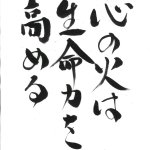 心の火は
生命力を
高める